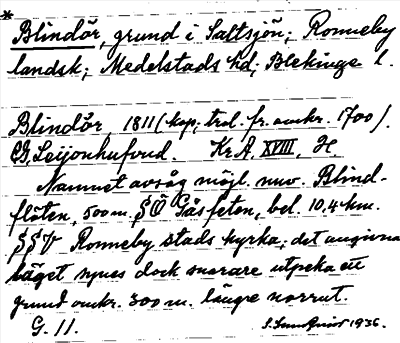 * Blindör, grund i Saltsjön; Ronneby
landsk; Medelstads hd; Blekinge l.
Blindör, 1811 (kop; trol. fr. omkr. 1700).
CG Leijonhufvud. Kr.A. XVIII, H.
Namnet avsåg möjl. nuv. Blind-
flöten, 500 m. SÖ Gåsfeten, bel. 10,4 km.
SSV Ronneby stads kyrka; det angivna
läget synes dock snarare utpeka ett
grund omkr. 300 m. längre norrut.
G. 11. 1936.